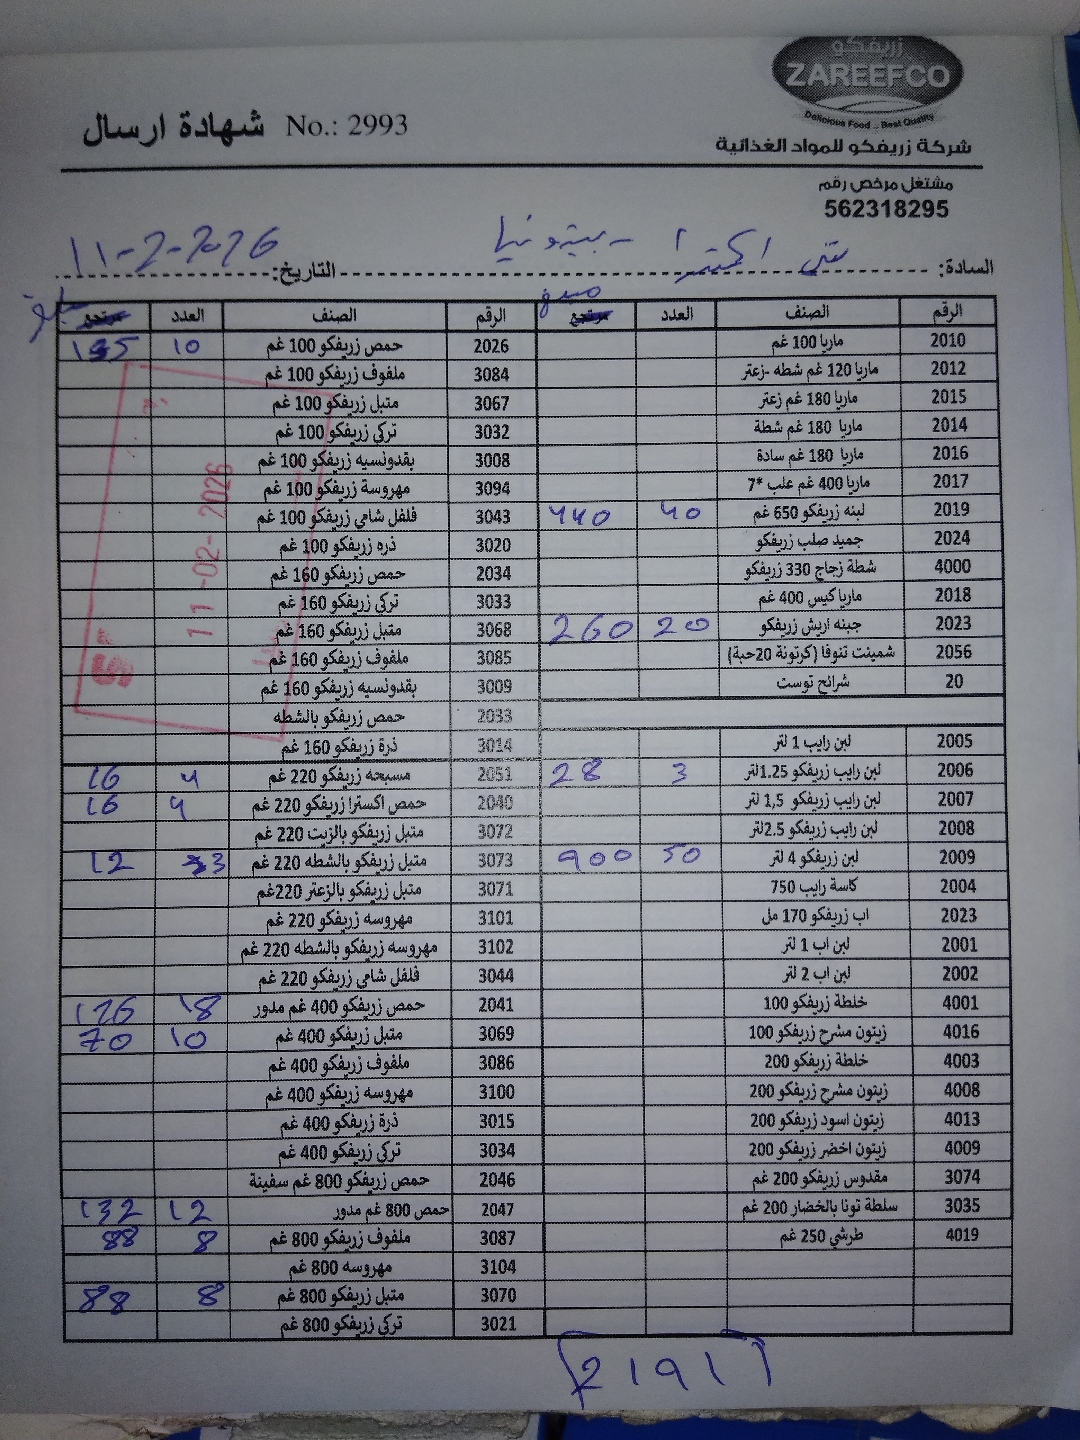 زريفكو
ZAREEFCO
Delicious Food .. Best Quality
شركة زريفكو للمواد الغذائية
شهادة ارسال No.: 2993
مشتغل مرخص رقم
562318295
السادة: بيتونيا
التاريخ: 11-2-2026
الرقم الصنف العدد مرتجع الرقم الصنف العدد مرتجع
2010 ماريا 100 غم 2026 حمص زريفكو 100 غم 10
2012 ماريا 120 غم شطه -زعتر 3084 ملفوف زريفكو 100 غم
2015 ماريا 180 غم زعتر 3067 متبل زريفكو 100 غم
2014 ماريا 180 غم شطة 3032 تركي زريفكو 100 غم
2016 ماريا 180 غم سادة 3008 بقدونسيه زريفكو 100 غم
2017 ماريا 400 غم علب *7 3094 مهروسة زريفكو 100 غم
2019 لبنه زريفكو 650 غم 40 440 3043 فلفل شامي زريفكو 100 غم
2024 جميد صلب زريفكو 3020 ذره زريفكو 100 غم
4000 شطة زجاج 330 زريفكو 2034 حمص زريفكو 160 غم
2018 ماريا كيس 400 غم 3033 تركي زريفكو 160 غم
2023 جبنه اريش زريفكو 20 260 3068 متبل زريفكو 160 غم
2056 شمينت تنوفا (كرتونة 20حبة) 3085 ملفوف زريفكو 160 غم
20 شرائح توست 3009 بقدونسيه زريفكو 160 غم
2033 حمص زريفكو بالشطه
2005 لبن رايب 1 لتر 3014 ذرة زريفكو 160 غم
2006 لبن رايب زريفكو 1.25لتر 3 28 2051 مسبحه زريفكو 220 غم 4 16
2007 لبن رايب زريفكو 1,5 لتر 2040 حمص اكسترا زريفكو 220 غم 4 16
2008 لبن رايب زريفكو 2.5لتر 3072 متبل زريفكو بالزيت 220 غم
2009 لبن زريفكو 4 لتر 50 900 3073 متبل زريفكو بالشطه 220 غم 3 12
2004 كاسة رايب 750 3071 متبل زريفكو بالزعتر 220غم
2023 اب زريفكو 170 مل 3101 مهروسه زريفكو 220 غم
2001 لبن اب 1 لتر 3102 مهروسه زريفكو بالشطه 220 غم
2002 لبن اب 2 لتر 3044 فلفل شامي زريفكو 220 غم
4001 خلطة زريفكو 100 2041 حمص زريفكو 400 غم مدور 18 126
4016 زيتون مشرح زريفكو 100 3069 متبل زريفكو 400 غم 10 70
4003 خلطة زريفكو 200 3086 ملفوف زريفكو 400 غم
4008 زيتون مشرح زريفكو 200 3100 مهروسه زريفكو 400 غم
4013 زيتون اسود زريفكو 200 3015 ذرة زريفكو 400 غم
4009 زيتون اخضر زريفكو 200 3034 تركي زريفكو 400 غم
3074 مقدوس زريفكو 200 غم 2046 حمص زريفكو 800 غم سفينة
3035 سلطة تونا بالخضار 200 غم 2047 حمص 800 غم مدور 12 132
4019 طرشي 250 غم 3087 ملفوف زريفكو 800 غم 8 88
3104 مهروسه 800 غم
3070 متبل زريفكو 800 غم 8 88
3021 تركي زريفكو 800 غم
11-02-2026
2191